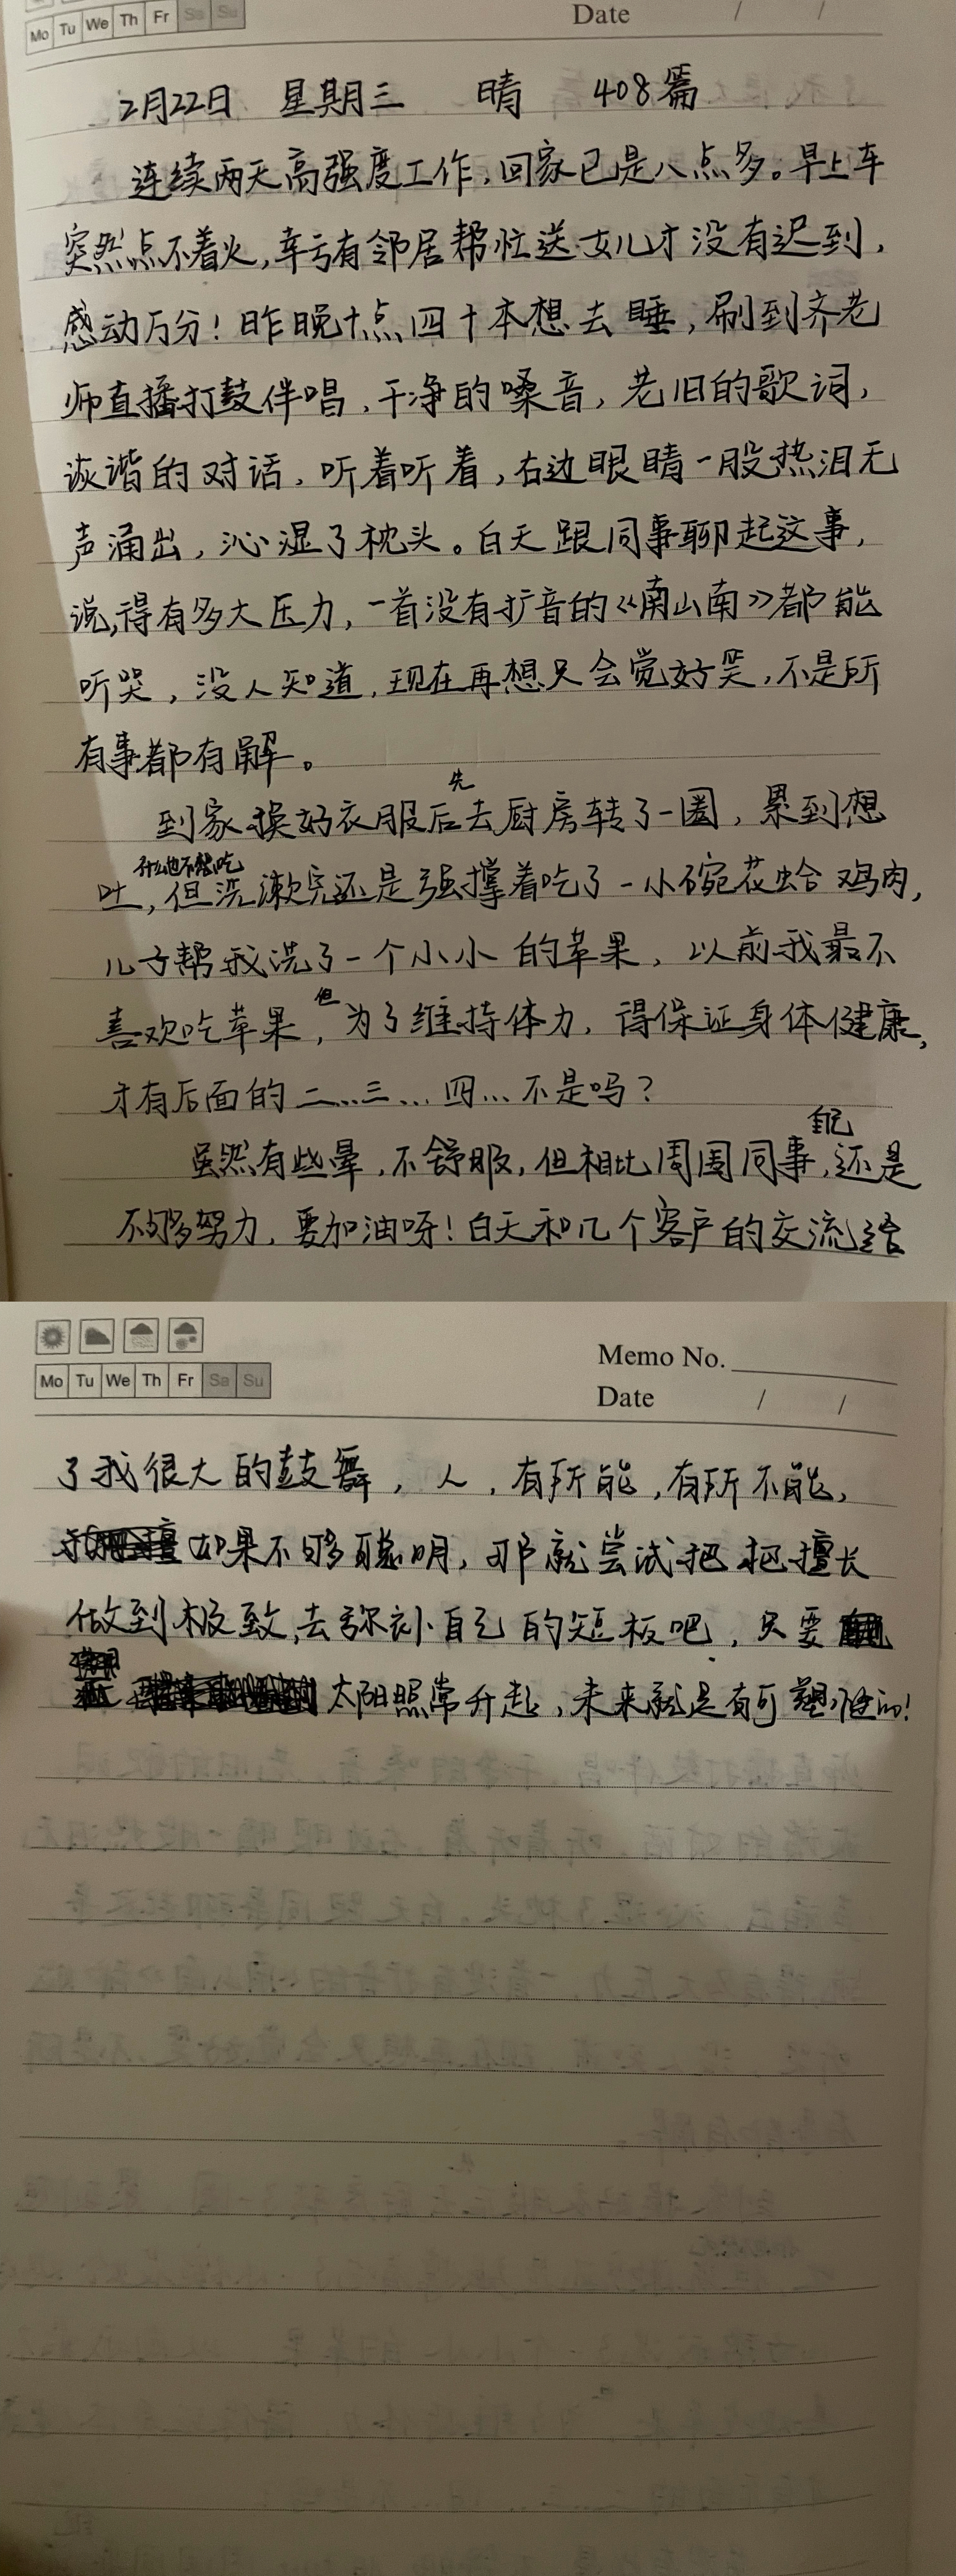 Mo Tu We Th Fr Sa Su
Date / /
2月22日 星期三 晴 408篇
连续两天高强度工作,回家已是八点多。早上车
突然点不着火,幸亏有邻居帮忙送女儿才没有迟到,
感动万分!昨晚十点四十本想去睡,刷到齐老
师直播打鼓伴唱,干净的嗓音,老旧的歌词,
诙谐的对话,听着听着,右边眼睛一股热泪无
声涌出,沁湿了枕头。白天跟同事聊起这事,
说,得有多大压力,一首没有扩音的《南山南》都能
听哭,没人知道,现在再想只会觉好笑,不是所
有事都有解。
到家换好衣服后先去厨房转了一圈,累到想
吐,什么也不想吃,但洗漱完还是强撑着吃了一小碗花蛤鸡肉,
儿子帮我洗了一个小小的苹果,以前我最不
喜欢吃苹果,但为了维持体力,得保证身体健康,
才有后面的二…三…四…不是吗?
虽然有些晕,不舒服,但相比周围同事,自己还是
不够努力,要加油呀!白天和几个客户的交流给
Memo No.
Mo Tu We Th Fr Sa Su
Date / /
了我很大的鼓舞,人,有所能,有所不能,
如果不够聪明,那就尝试把把擅长
做到极致,去弥补自己的短板吧,只要
太阳照常升起,未来就是有可塑性的!